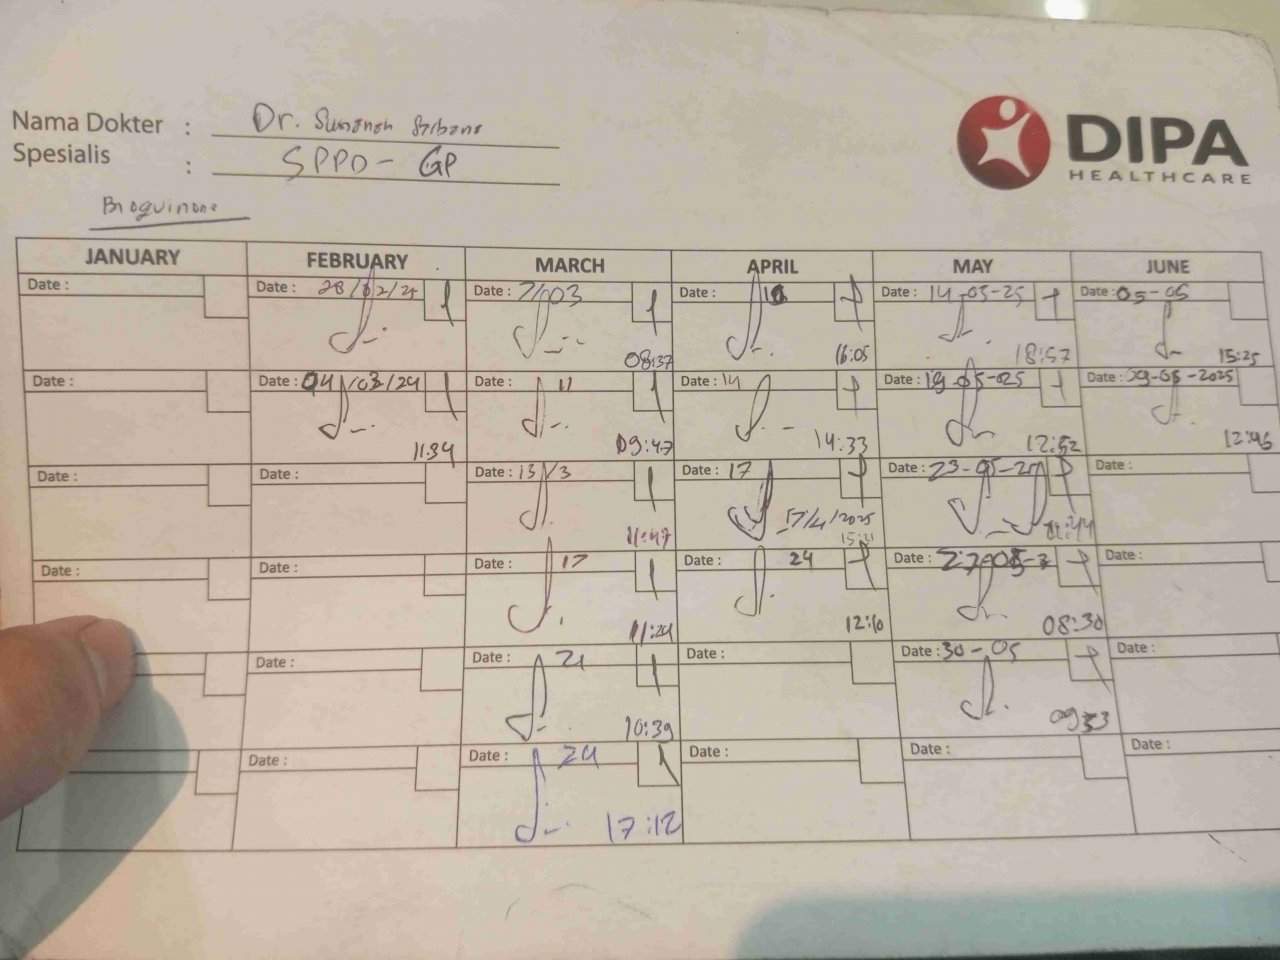 Nama Dokter : Dr.
Spesialis : SPPD - GP
DIPA
HEALTHCARE
Bioquinone
JANUARY FEBRUARY MARCH APRIL MAY JUNE
Date : Date : 28/02/25 Date : 7/03 Date : Date : 14-05-25 Date : 05-05
08:37 16:05 18:57 15:25
Date : Date : 04/03/24 Date : 11 Date : 14 Date : 19-05-025 Date : 09-05-2025
11:34 09:47 14:33 12:52 12:46
Date : Date : Date : 13/3 Date : 17 Date : 23-05-25 Date :
11:47 17/4/2025 15:21
Date : Date : Date : 17 Date : 24 Date : Date :
11:24 12:10 08:30
Date : Date : 21 Date : Date : 30-05 Date :
10:39 09:33
Date : Date : 24 Date : Date : Date :
17:12